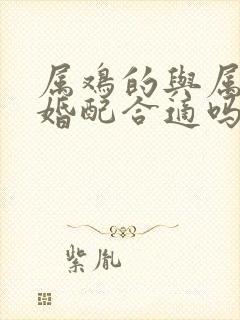 属鸡的与属
婚配合适吗
紫胤